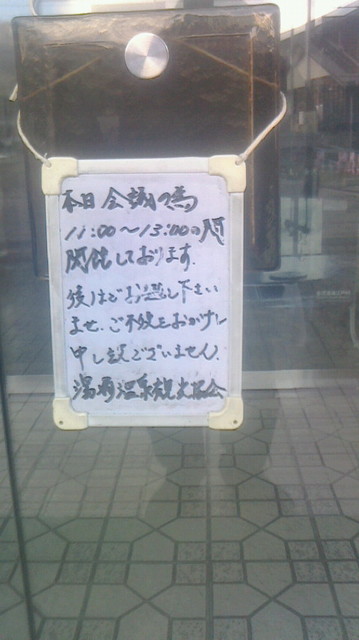 本日会議の為
11:00〜13:00の間
閉館しております.
後ほどお越し下さい
ませ. ご不便をおかけし
申し訳ございません.
温泉観光協会